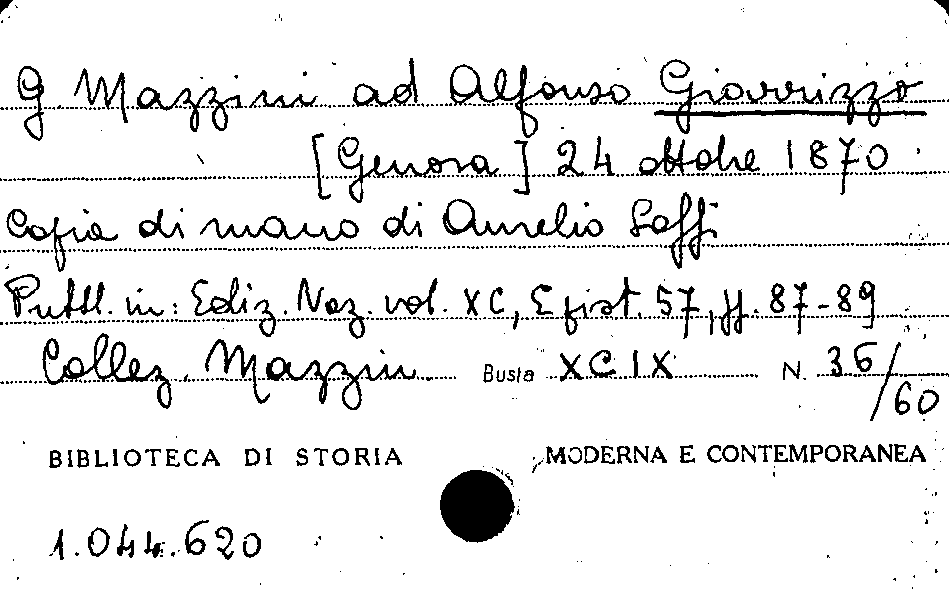 G. Mazzini ad Alfonso Giarrizzo
[Genova] 24 ottobre 1870
Copia di mano di Aurelio Saffi
Pubbl. in: Ediz. Naz. vol. XC, Epist. 57, pp. 87-89
Collez. Mazzini Busta XCIX N. 36/60
BIBLIOTECA DI STORIA MODERNA E CONTEMPORANEA
1.044.620